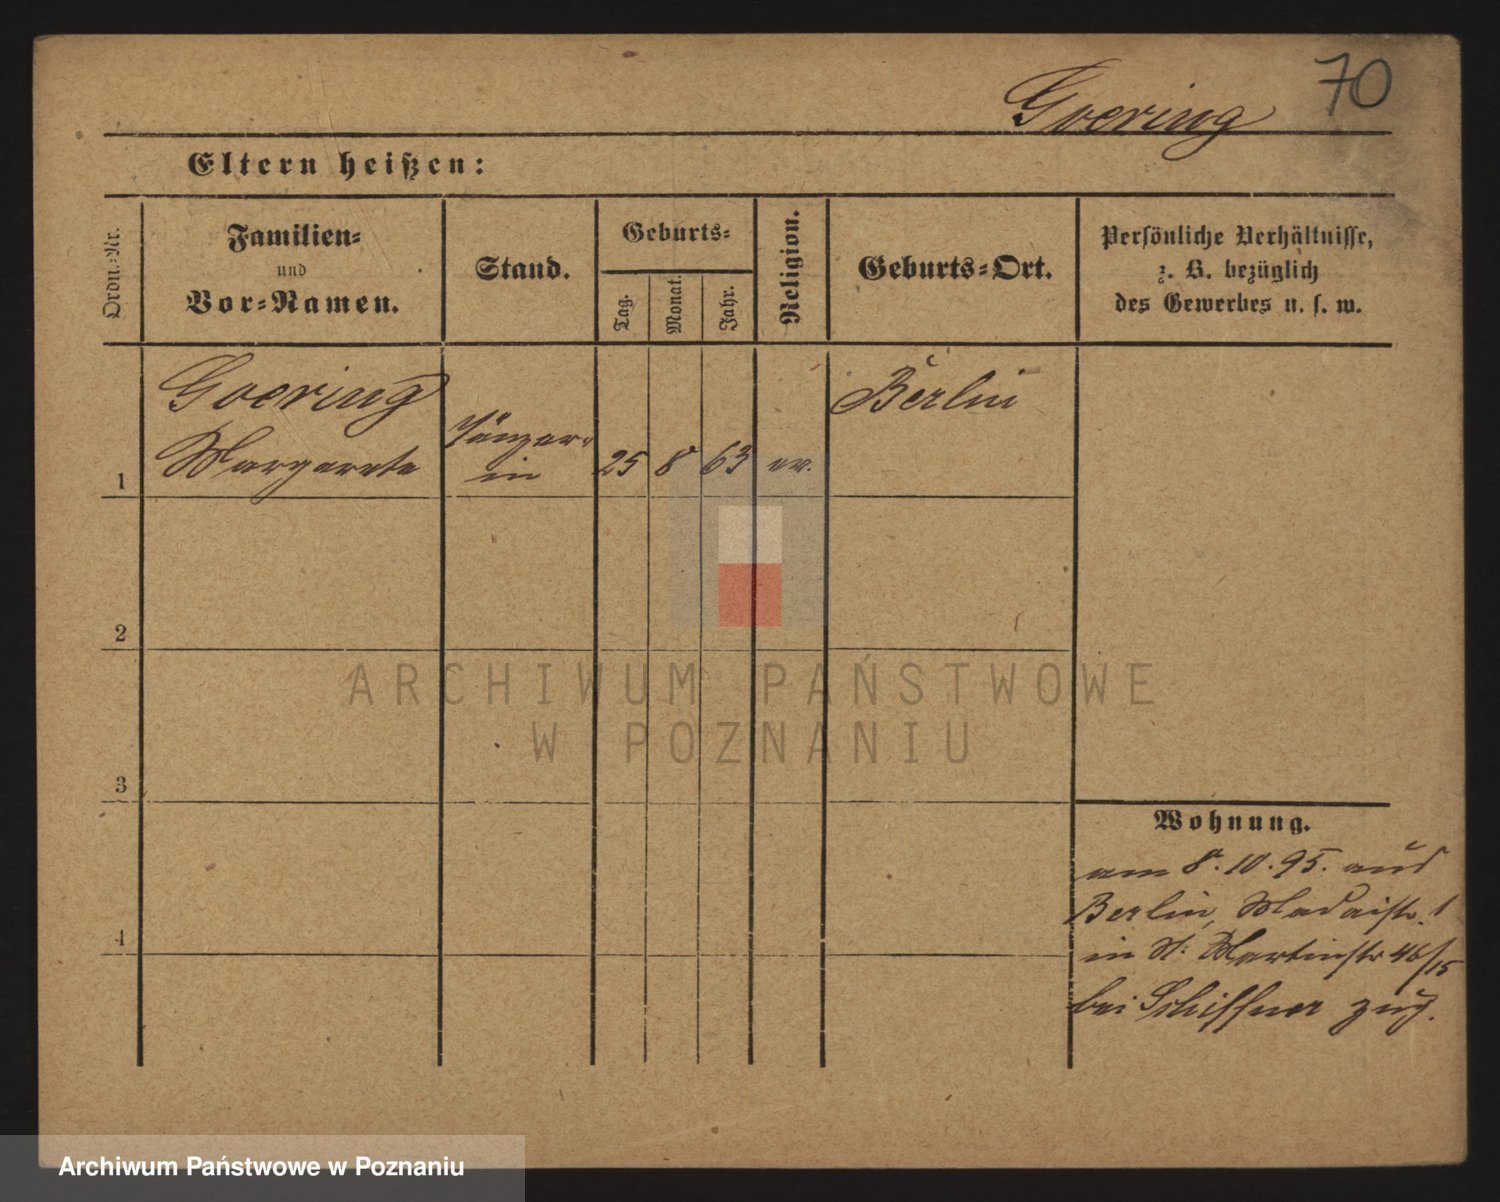 70
Goering
Eltern heißen:
Ordn.=Nr.
Familien=
und
Vor=Namen.
Stand.
Geburts=
Tag.
Monat.
Jahr.
Religion.
Geburts=Ort.
Persönliche Verhältnisse,
z. B. bezüglich
des Gewerbes u. s. w.
1
Goering
Margarete
in
25
8
63
ev.
Berlin
2
3
4
Wohnung.
am 8.10.95. aus
Berlin, Madaistr. 1
in St. Martinstr 46/15
bei Schiffner zug.
ARCHIWUM PAŃSTWOWE
W POZNANIU
Archiwum Państwowe w Poznaniu